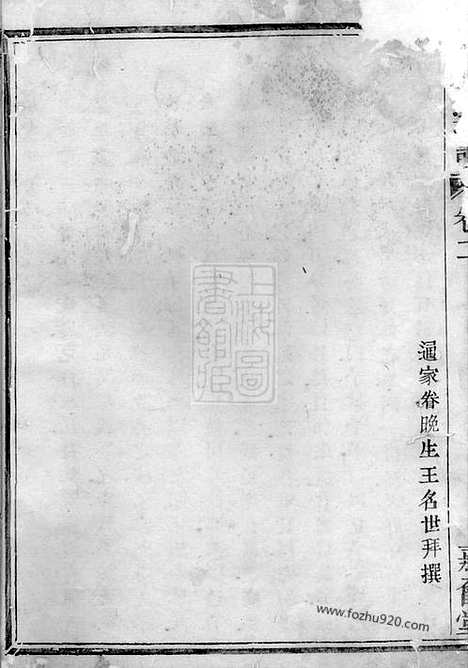 卷二
通家眷晚生王名世拜撰
上海圖
書館藏
www.fozhu920.com